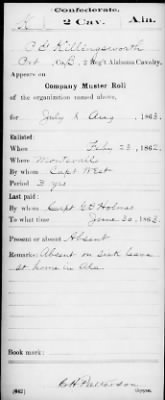 Confederate.
K 2 Cav. Ala.
C B Killingsworth
Pvt, Co. B, 2 Reg't Alabama Cavalry.
Appears on
Company Muster Roll
of the organization named above,
for July & Aug, 1863.
Enlisted:
When Feby 23, 1862.
Where Montevallo
By whom Capt West
Period 3 yrs
Last paid:
By whom Capt G B Holmes
To what time June 30, 1863.
Present or absent Absent
Remarks: Absent on sick leave
at home in Ala
Book mark:
(642) Copyist.